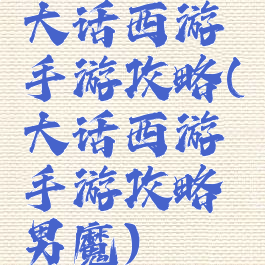 大话西游
手游攻略(
大话西游
手游攻略
男魔)